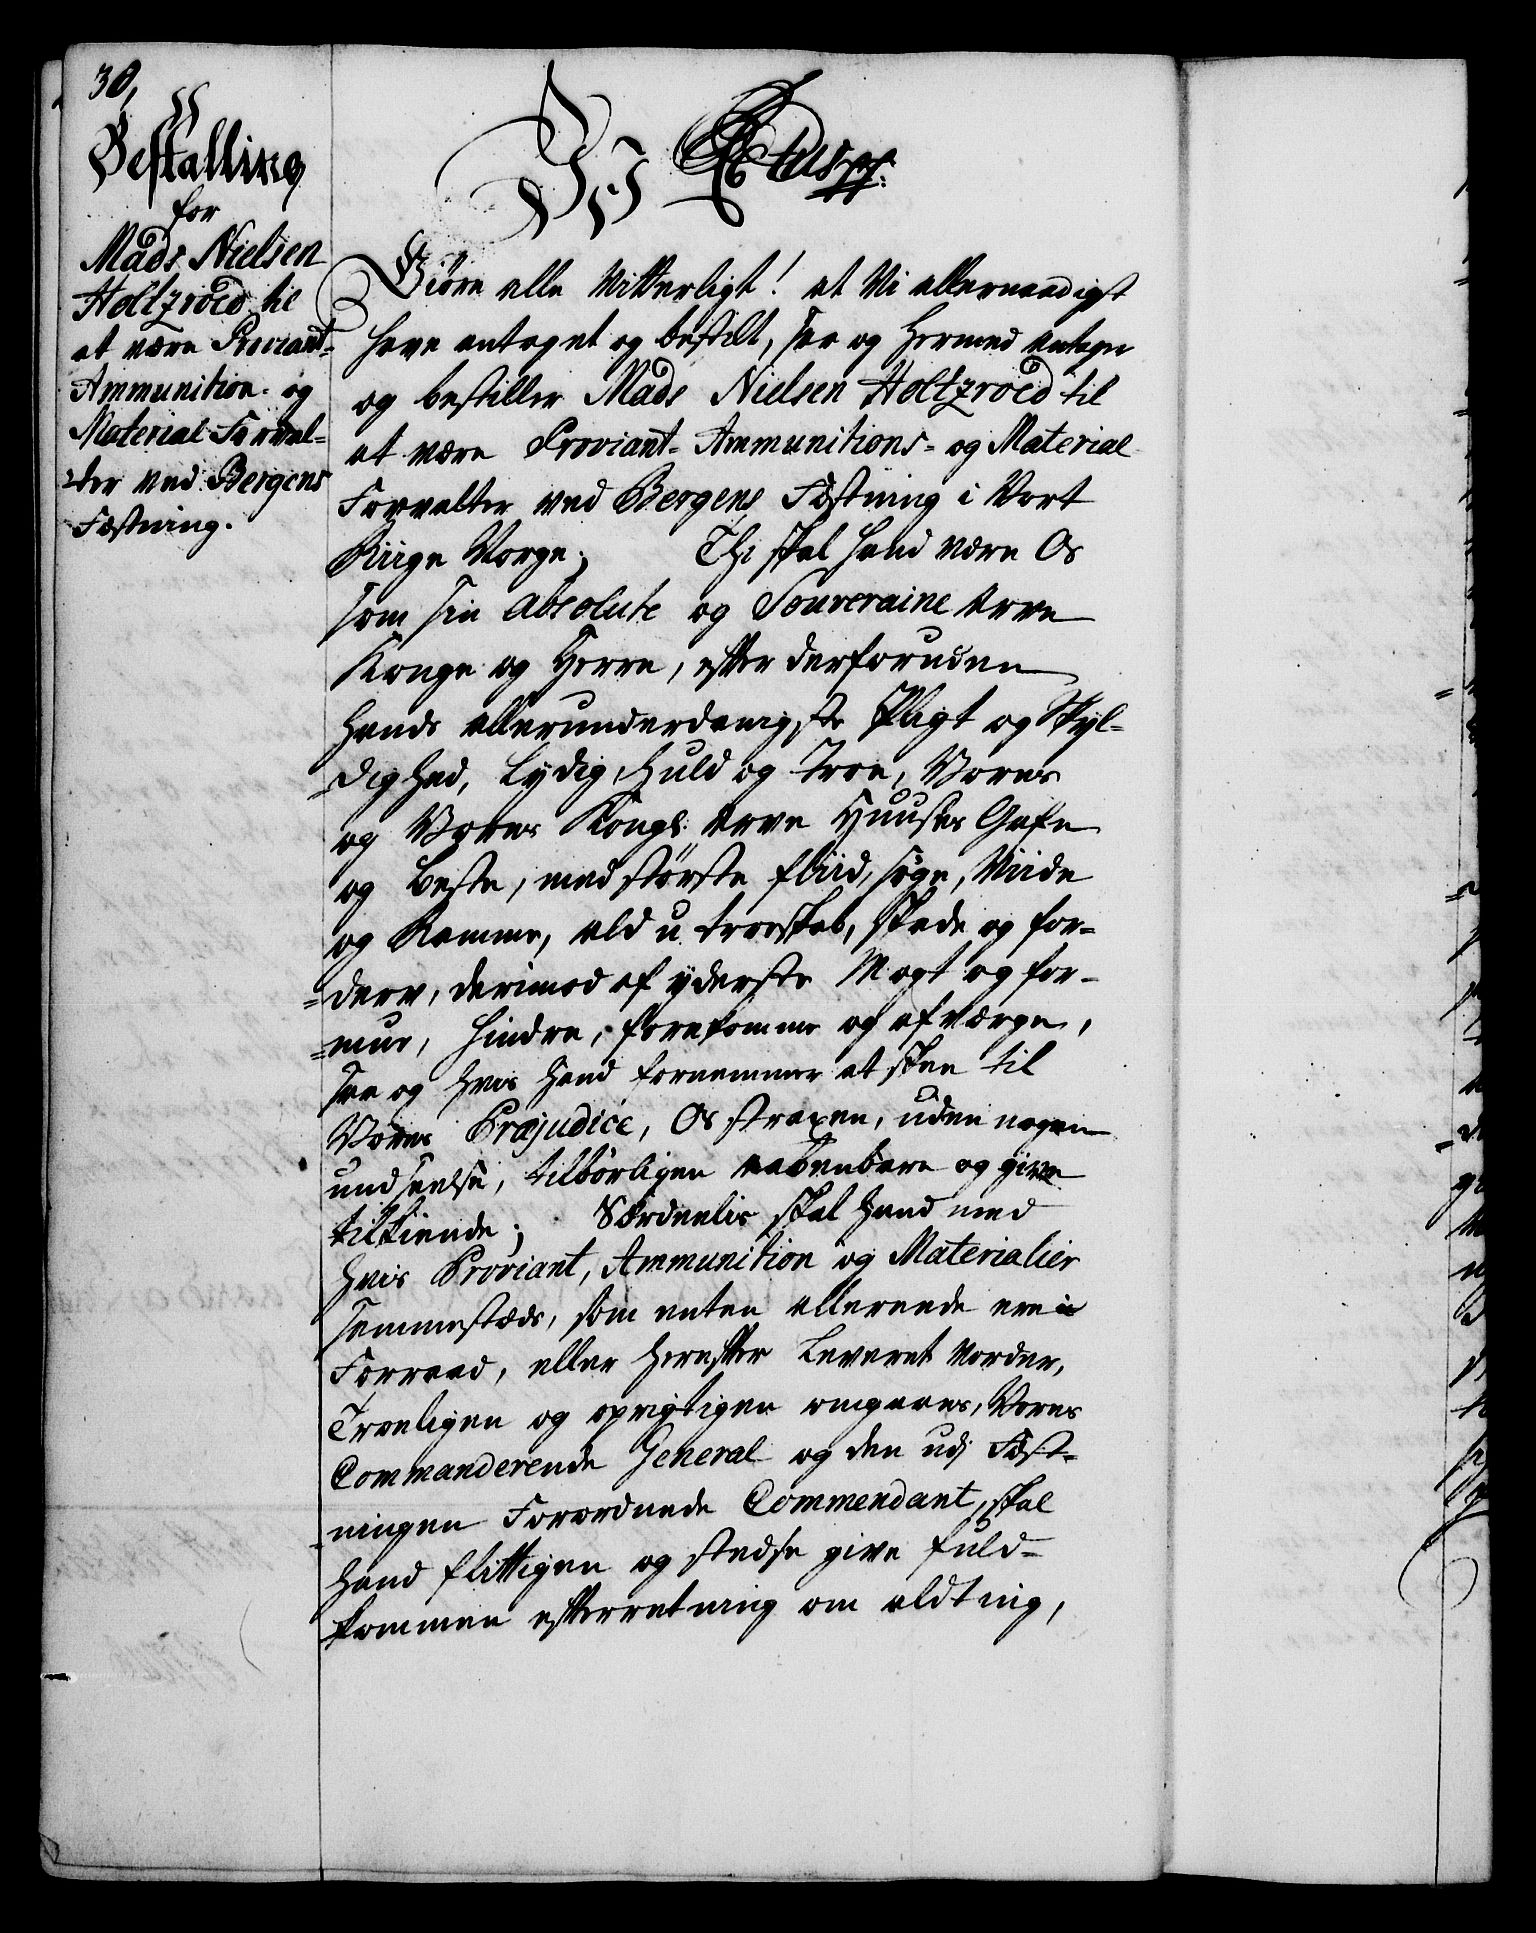 30,
Bestalling
for
Mads Nielsen
Holtzroed til
at være Proviant-
Ammunition- og
Material Forval-
=ter ved Bergens
Fæstning.
Vi
Giøre alle Vitterligt! at Vi allernaadigst
have antaget og bestilt, saa og hermed antager
og bestiller Mads Nielsen Holtzroed til
at være Proviant- Ammunitions- og Material
Forvalter ved Bergens Fæstning i Vort
Riige Norge; Thi skal hand være Os
som sin absolute og Souveraine Arve
Konge og Herre, efter derforuden
hands allerunderdanigste Pligt og Skyl-
dighed, Lydig, huld og Troe, Vores
og Vores Kongl: Arve Huuses Gafn
og beste, med største fliid, søge, Viide
og Ramme, ald u-troeskab, skade og for-
=derv, derimod af yderste Magt og for-
=mue, hindre, forekomme og afværge,
saa og hvis hand fornemmer at skee til
Vores Præjudice, Os straxen, uden nogen
undseelse, tilbørligen aabenbare og give
tilkiende; Særdeelis skal hand med
hvis Proviant, Ammunition og Materialier
sammestæds, som enten allereede ere i
Forraad, eller herefter Leveret vorder,
Troeligen og oprigtigen omgaaes, Vores
Commanderende General og den udj Fæst-
ningen Forordnede Commendant, skal
hand flittigen og stedse give fuld-
kommen efterretning om alting,